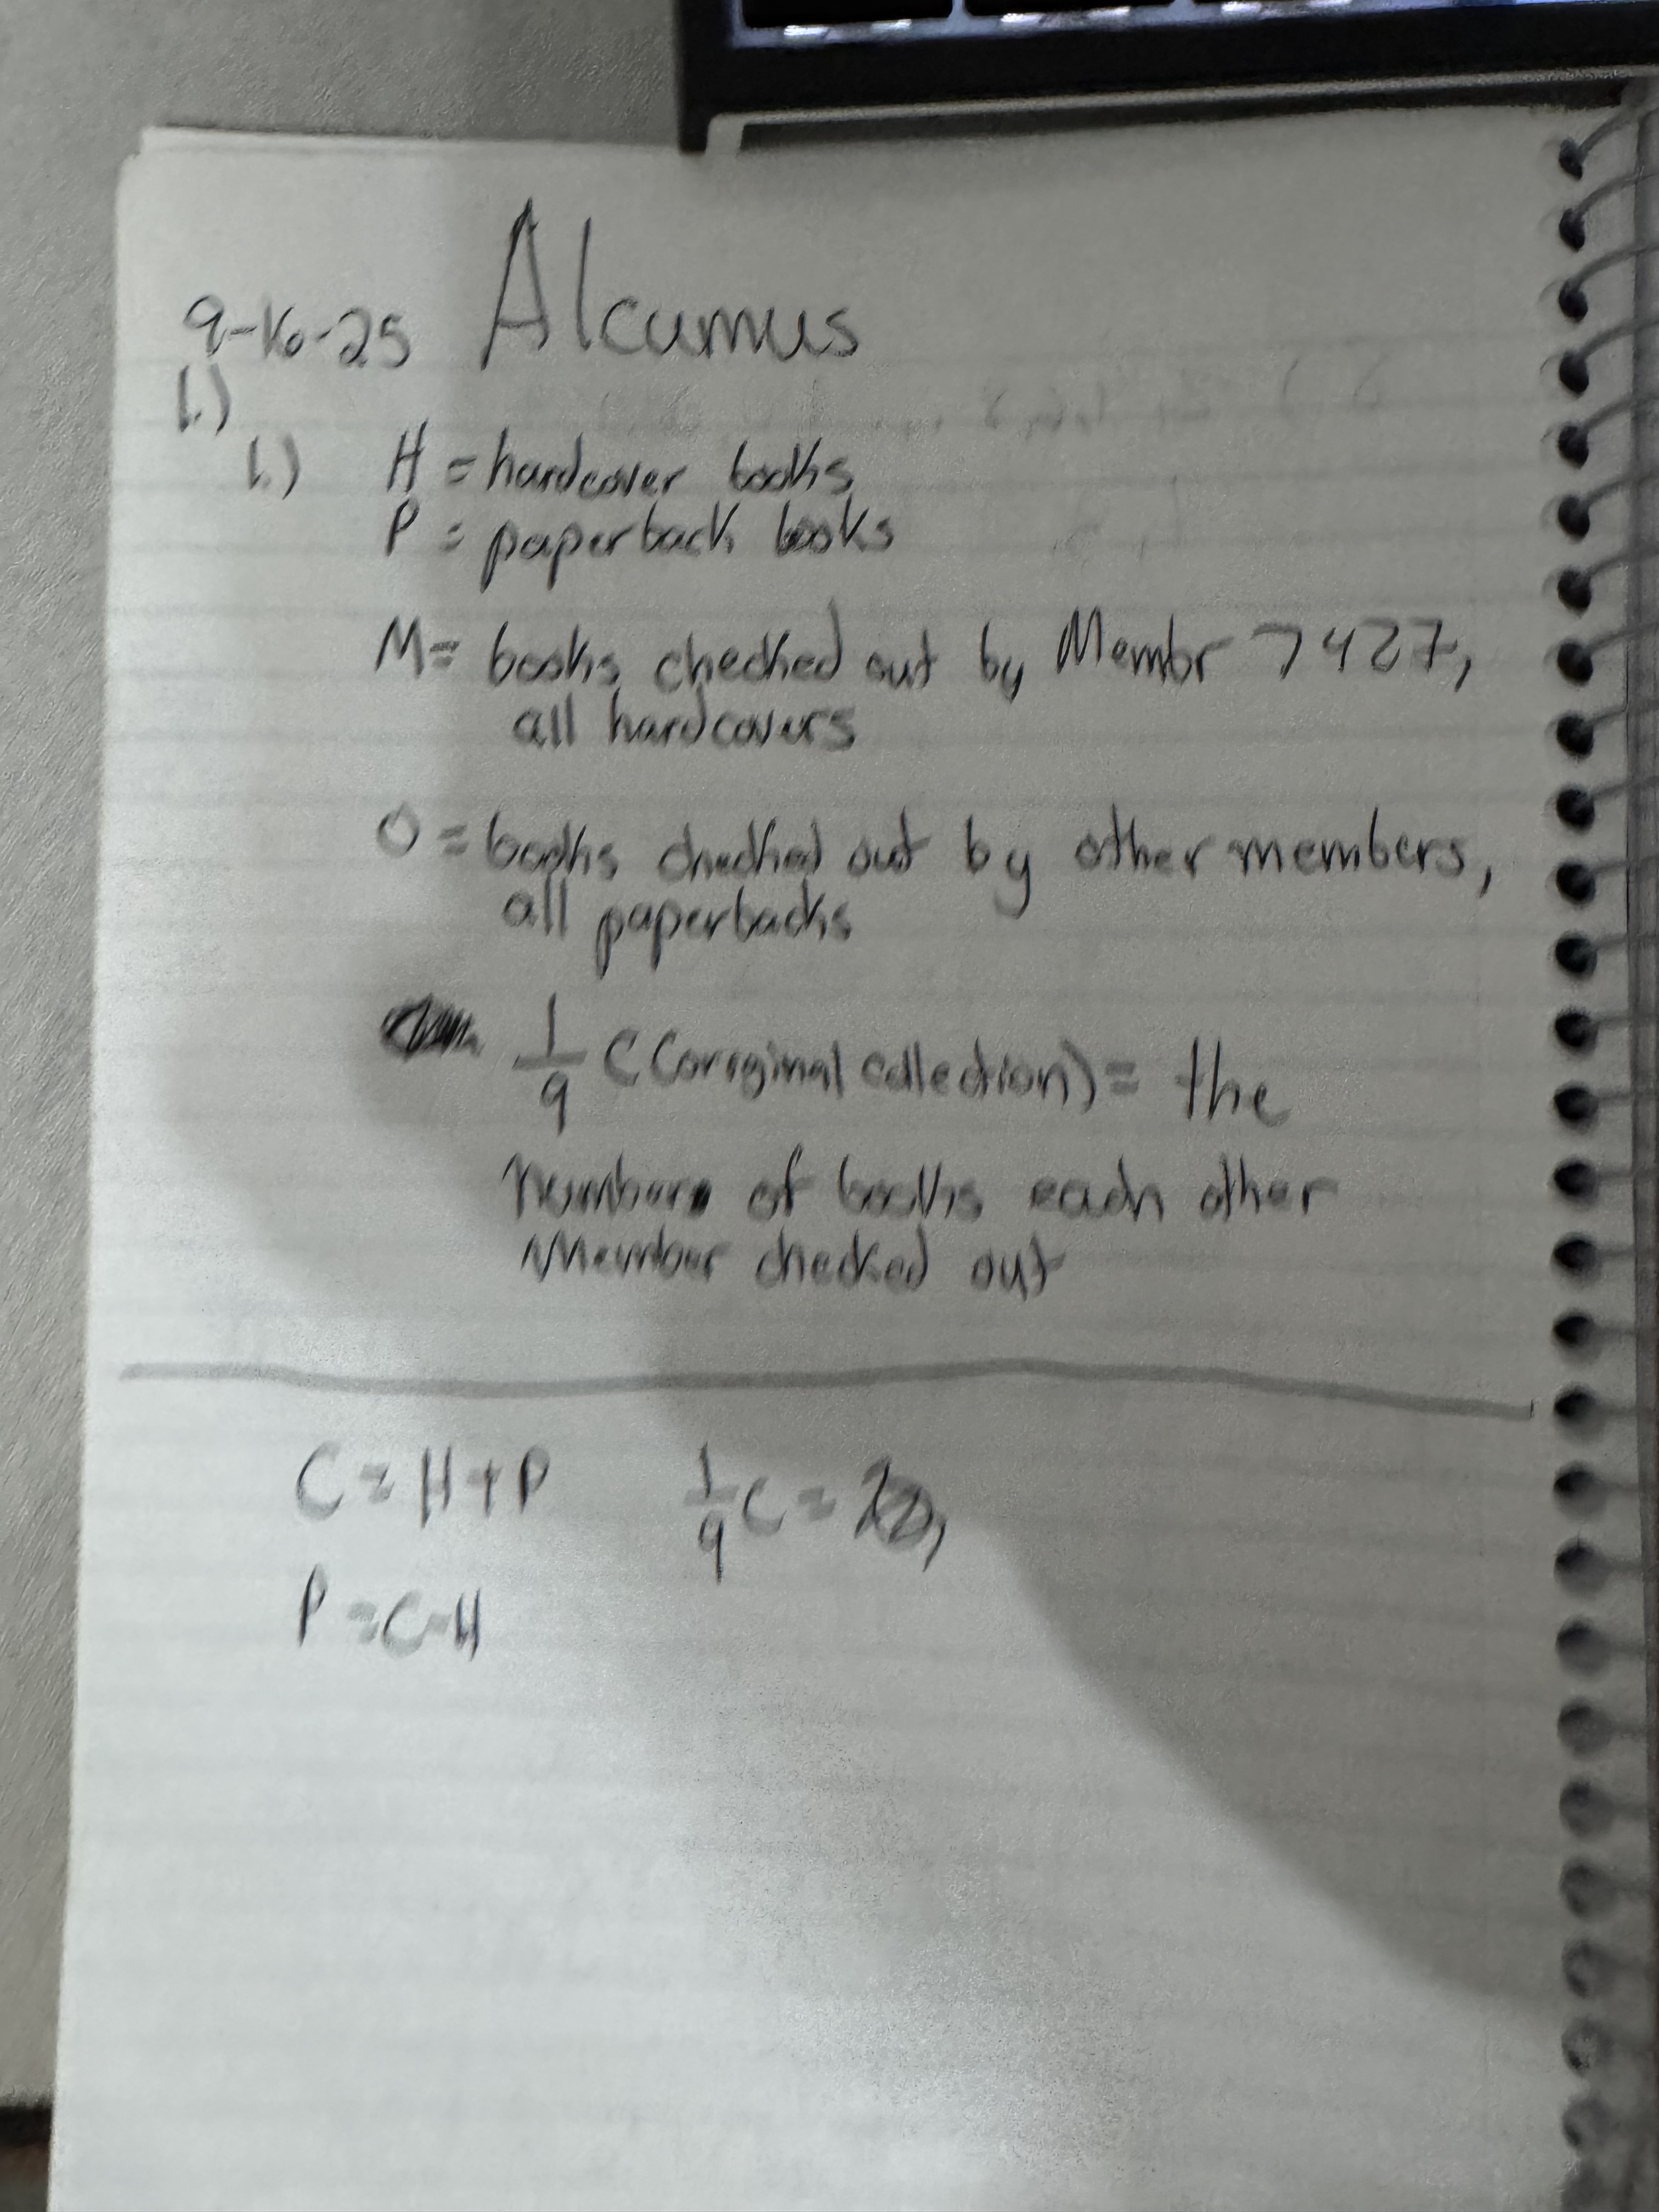 Alcumus
9-16-25
1.)
1.) H = hardcover books
P = paperback books
M = books checked out by Membr 7427,
all hardcovers
O = books checked out by other members,
all paperbacks
1/9 C (original collection) = the
number of books each other
Member checked out
C = H + P
1/9 C =
P = C - H